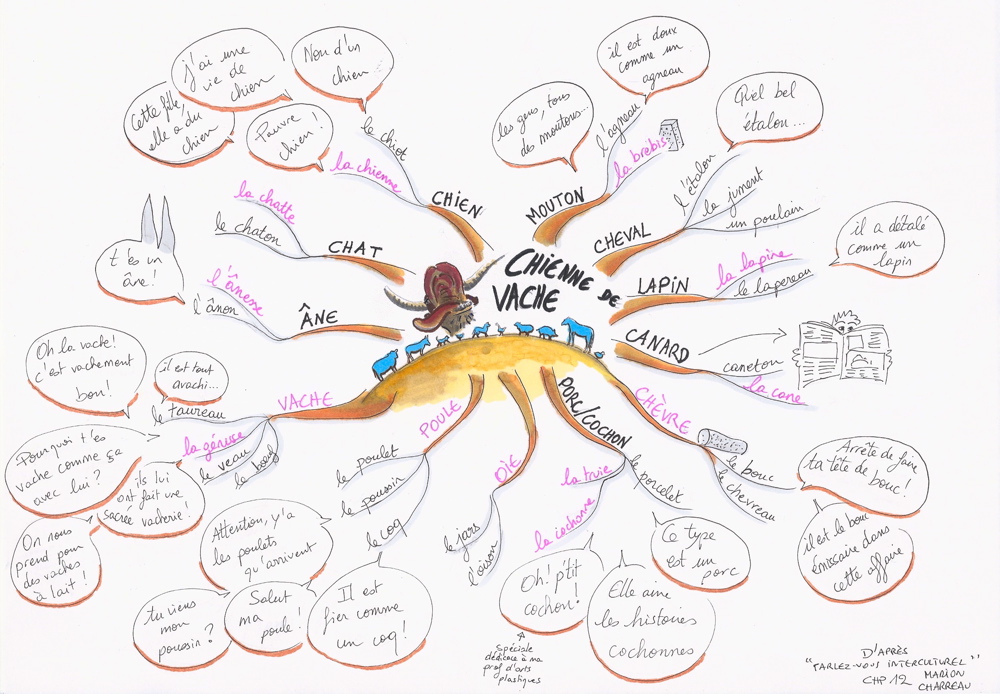 CHIENNE DE
VACHE
CHIEN
la chienne
le chiot
Cette fille,
elle a du
chien
j'ai une
vie de
chien
Nom d'un
chien...
Pauvre
chien!
CHAT
la chatte
le chaton
ÂNE
l'ânesse
l'ânon
t'es un
âne!
VACHE
le taureau
la génisse
le veau
le bœuf
Oh la vache!
c'est vachement
bon!
il est tout
avachi...
Pourquoi t'es
vache comme ça
avec lui?
ils lui
ont fait une
sacrée vacherie!
On nous
prend pour
des vaches
à lait!
POULE
le poulet
le poussin
le coq
Attention, y'a
les poulets
qu'arrivent
tu viens
mon
poussin?
Salut
ma
poule!
Il est
fier comme
un coq!
OIE
le jars
l'oison
PORC/COCHON
la truie
la cochonne
le porcelet
Oh! p'tit
cochon!
Spéciale
dédicace à ma
prof d'arts
plastiques
Elle aime
les histoires
cochonnes
Ce type
est un
porc
CHÈVRE
le bouc
le chevreau
Arrête de faire
ta tête de
bouc!
il est le bouc
émissaire dans
cette affaire
CANARD
caneton
la cane
LAPIN
la lapine
le lapereau
il a détalé
comme un
lapin
CHEVAL
l'étalon
la jument
un poulain
Quel bel
étalon...
MOUTON
l'agneau
la brebis
les gens, tous
des moutons...
il est doux
comme un
agneau
D'APRÈS
"PARLEZ-VOUS INTERCULTUREL"
CHP 12 MARION
CHARREAU